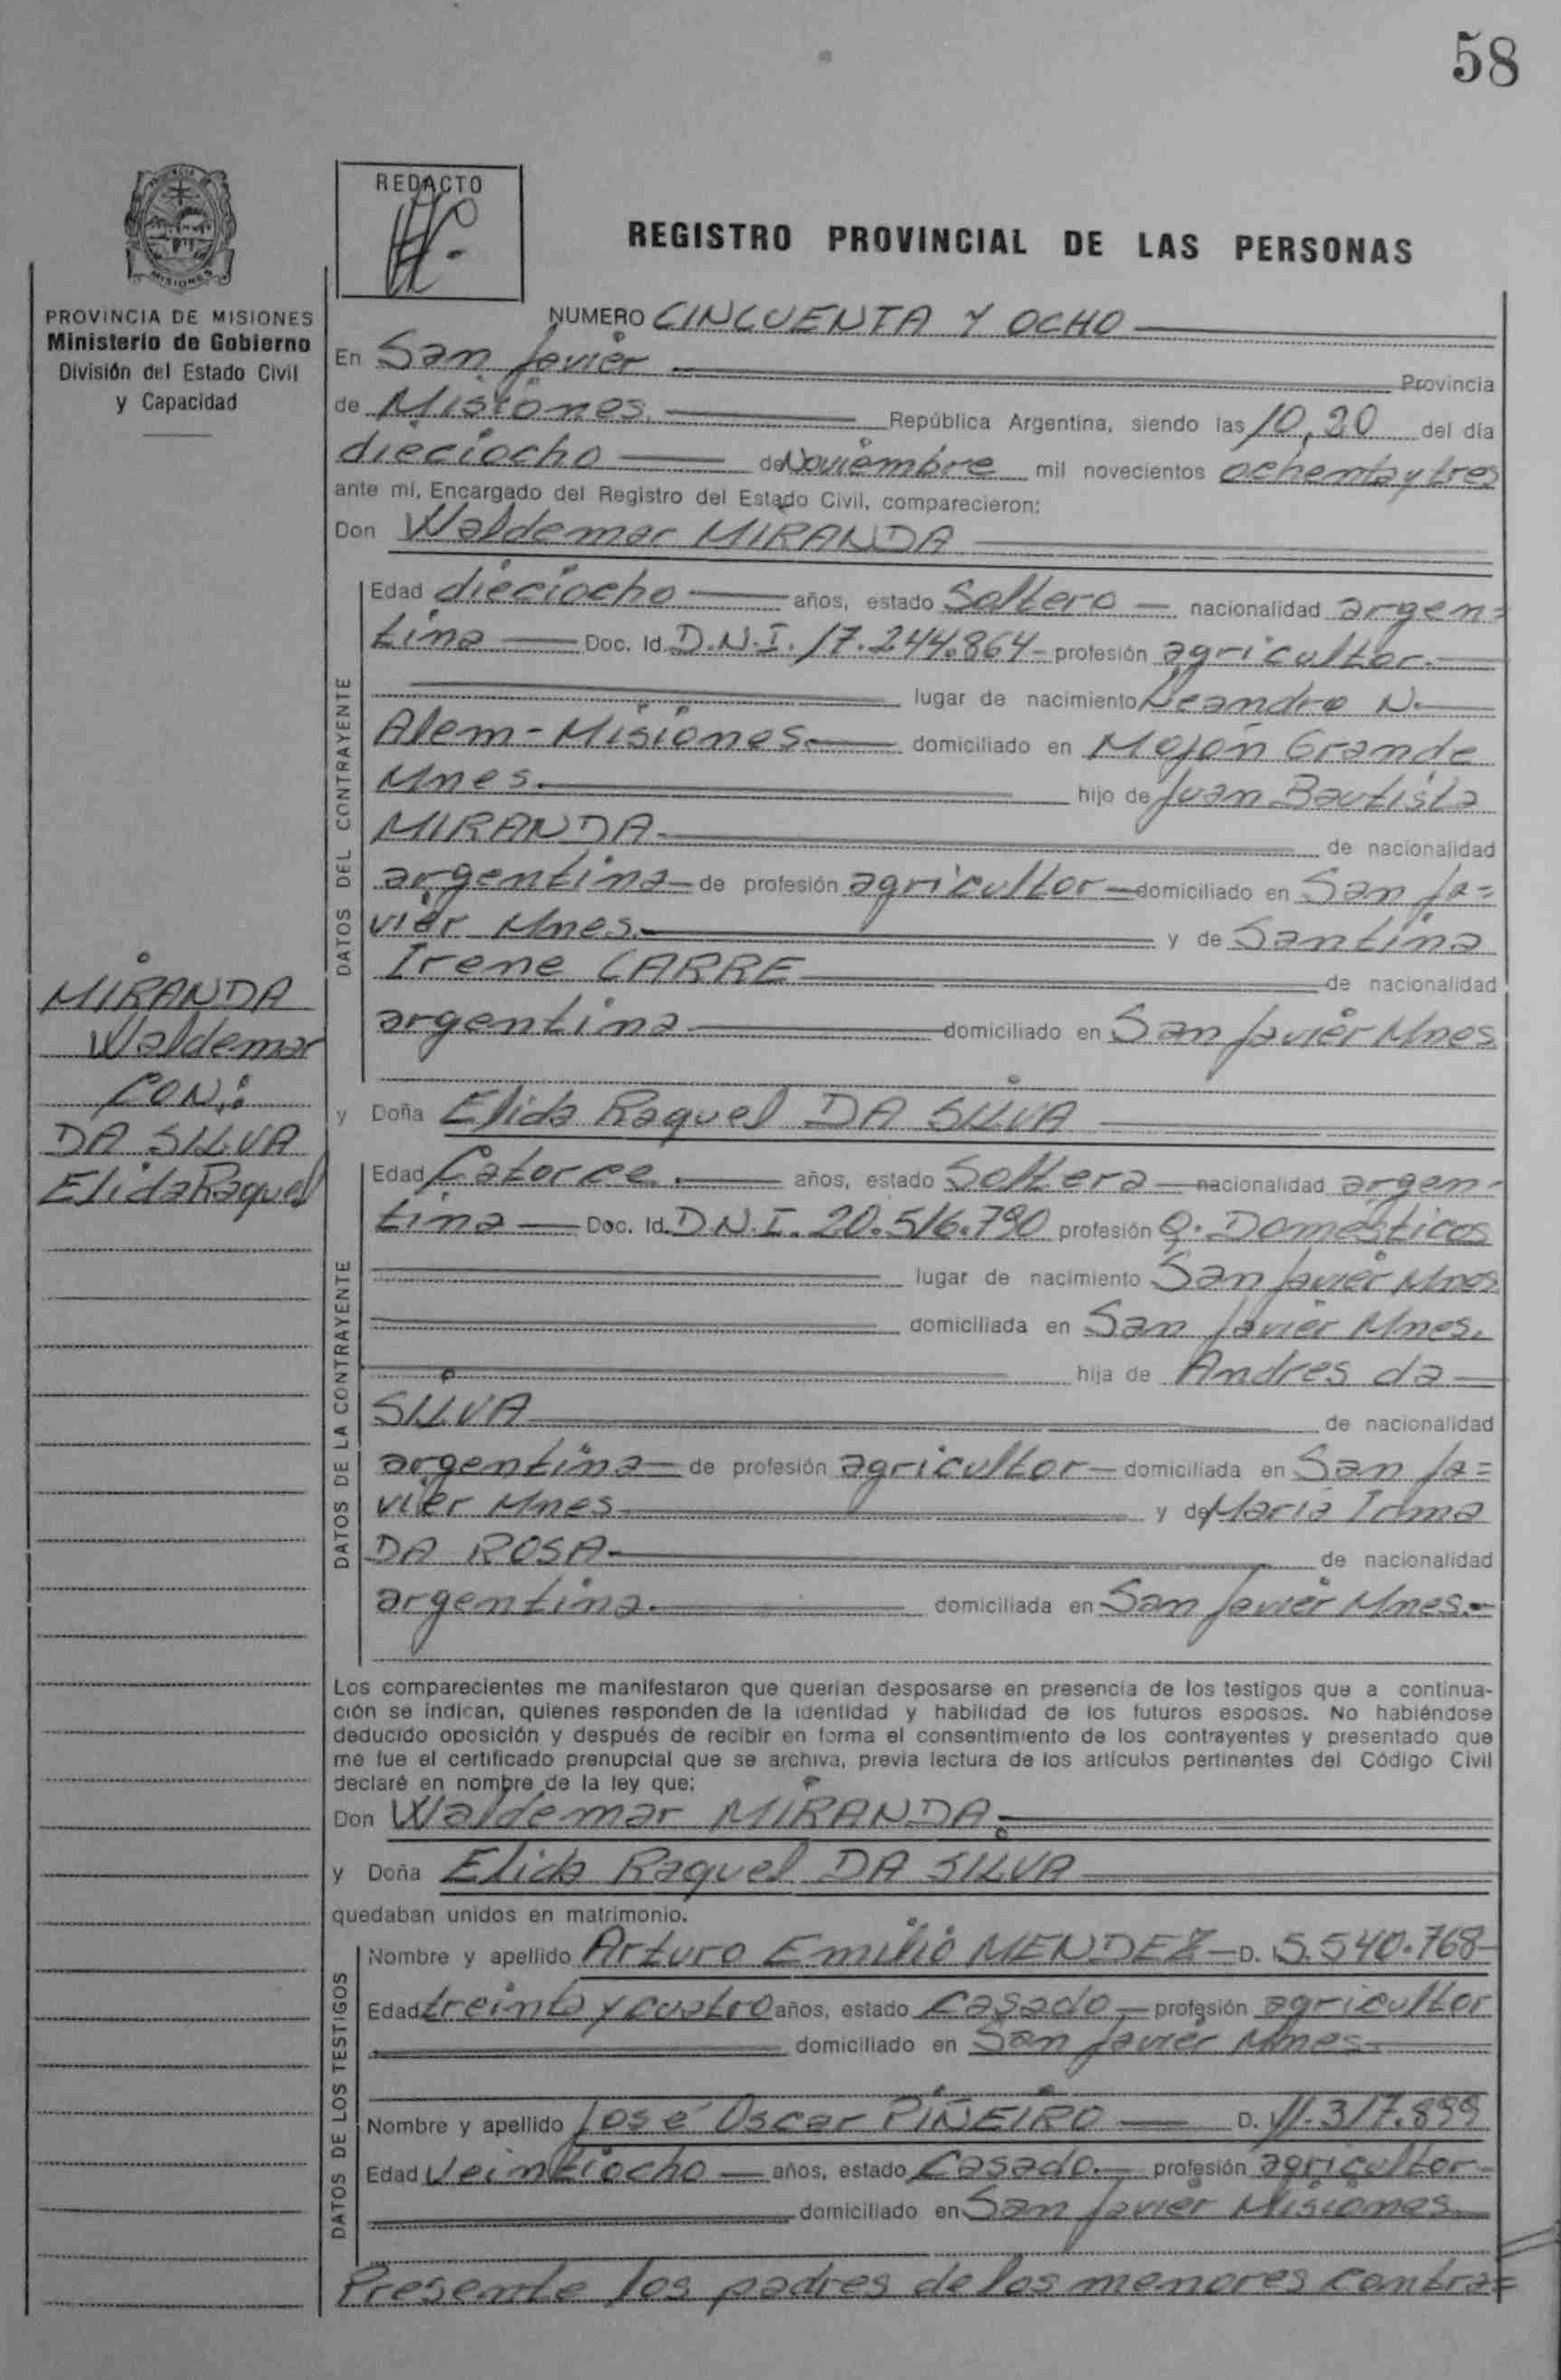 58
REDACTO
REGISTRO PROVINCIAL DE LAS PERSONAS
MISIONES
PROVINCIA DE MISIONES
Ministerio de Gobierno
División del Estado Civil
y Capacidad
NUMERO CINCUENTA Y OCHO
En San Javier Provincia
de Misiones. República Argentina, siendo las 10,20 del día
dieciocho de Noviembre mil novecientos ochenta y tres
ante mí, Encargado del Registro del Estado Civil, comparecieron:
Don Waldemar MIRANDA
DATOS DEL CONTRAYENTE
Edad dieciocho años, estado Soltero nacionalidad argen=
tina Doc. Id. D.N.I. 17.244.864 - profesión agricultor.
lugar de nacimiento Leandro N.
Alem - Misiones. domiciliado en Mojón Grande
Mnes. hijo de Juan Bautista
MIRANDA de nacionalidad
argentina de profesión agricultor domiciliado en San Ja=
vier Mnes. y de Santina
Irene CARRE de nacionalidad
argentina domiciliado en San Javier Mnes
MIRANDA
Waldemar
CON:
DA SILVA
Elida Raquel
y Doña Elida Raquel DA SILVA
DATOS DE LA CONTRAYENTE
Edad Catorce. años, estado Soltera nacionalidad argen-
tina Doc. Id. D.N.I. 20.516.790 profesión Q. Domésticos
lugar de nacimiento San Javier Mnes
domiciliada en San Javier Mnes.
hija de Andres da
SILVA de nacionalidad
argentina de profesión agricultor domiciliada en San Ja=
vier Mnes y de Maria Irma
DA ROSA de nacionalidad
argentina. domiciliada en San Javier Mnes.-
Los comparecientes me manifestaron que querían desposarse en presencia de los testigos que a continua-
ción se indican, quienes responden de la identidad y habilidad de los futuros esposos. No habiéndose
deducido oposición y después de recibir en forma el consentimiento de los contrayentes y presentado que
me fue el certificado prenupcial que se archiva, previa lectura de los artículos pertinentes del Código Civil
declaré en nombre de la ley que:
Don Waldemar MIRANDA.
y Doña Elida Raquel DA SILVA
quedaban unidos en matrimonio.
DATOS DE LOS TESTIGOS
Nombre y apellido Arturo Emilio MENDEZ D. 5.540.768
Edad treinta y cuatro años, estado Casado profesión agricultor
domiciliado en San Javier Mnes.
Nombre y apellido José Oscar PIÑEIRO D. 11.317.899
Edad Veintiocho años, estado Casado. profesión agricultor
domiciliado en San Javier Misiones
Presente los padres de los menores contra=